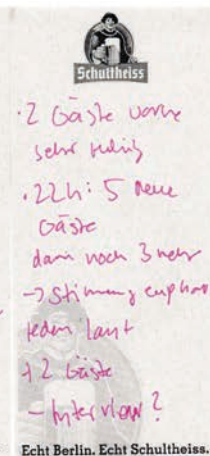 Schultheiss
· 2 Gäste vorne
sehr ruhig
· 22h: 5 neue
Gäste
dann noch 3 mehr
-> Stimmung euphor
reden laut
+ 2 Gäste
- Interview?
Echt Berlin. Echt Schultheiss.